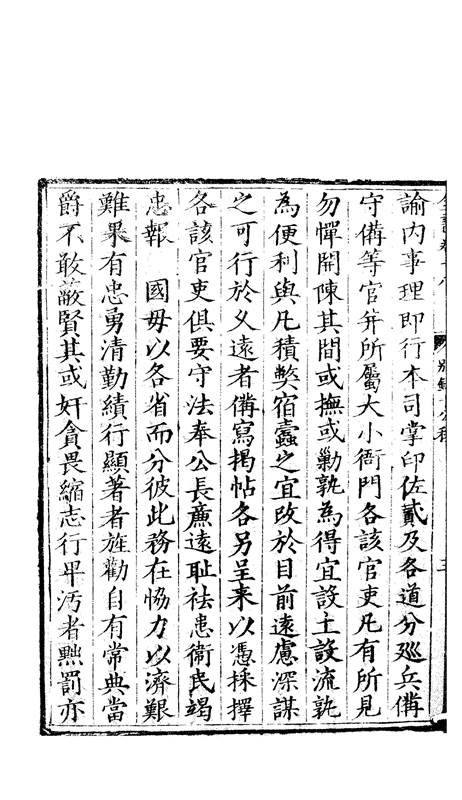 諭內事理即行本司掌印佐貳及各道分廵兵備
守備等官并所屬大小衙門各該官吏凡有所見
勿憚開陳其間或撫或勦孰為得宜設土設流孰
為便利與凡積獘宿蠹之宜改於目前遠慮深謀
之可行於乆遠者備寫揭帖各另呈来以憑採擇
各該官吏俱要守法奉公長亷遠耻祛患衞民竭
忠報　國毋以各省而分彼此務在恊力以濟艱
難果有忠勇清勤績行顯著者旌勸自有常典當
爵不敢蔽賢其或奸貪畏縮志行卑汚者黜罰亦